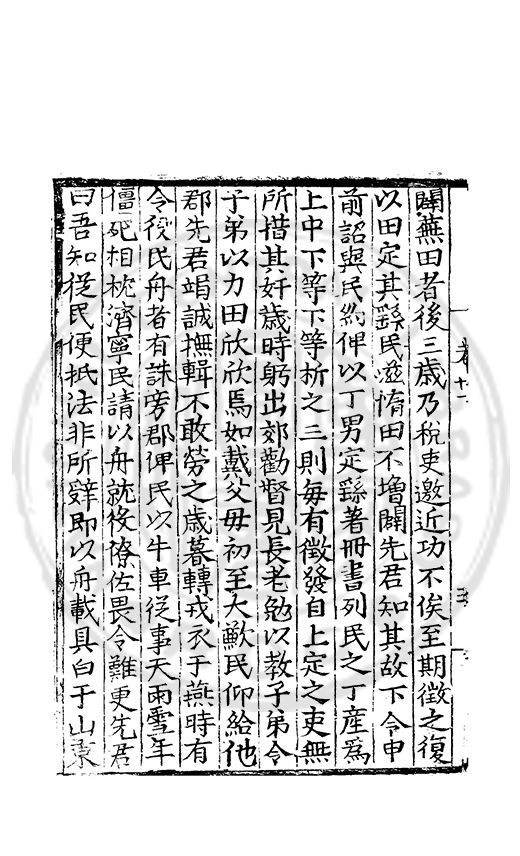 闢蕪田者後三歲乃稅吏邀近功不俟至期徵之復
以田定其繇民滋惰田不增闢先君知其故下令申
前詔與民約俾以丁男定繇著冊書列民之丁產為
上中下等下等析之三則每有徵發自上定之吏無
所措其奸歲時躬出郊勸督見長老勉以教子弟令
子弟以力田欣欣焉如戴父母初至大歉民仰給他
郡先君竭誠撫輯不敢勞之歲暮轉戎衣于燕時有
令役民舟者有誅旁郡俾民以牛車從事天雨雪牛
僵死相枕濟寧民請以舟就役僚佐畏令難更先君
曰吾知從民便抵法非所辭即以舟載具白于山東
卷十一